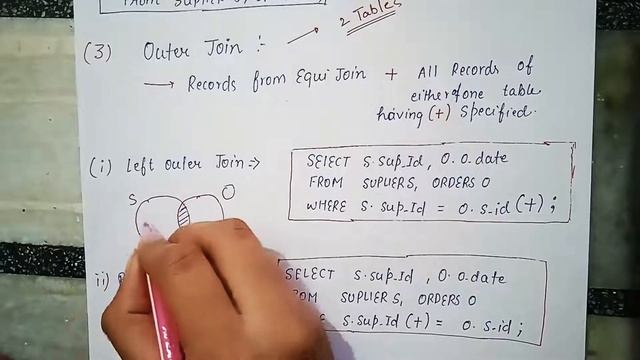 FROM
(3) Outer Join :- → 2 Tables
→ Records from Equi Join + All Records of
either of one table
having (+) Specified.
(i) Left Outer Join ⇒
S O
SElECT S.Sup_Id, O.O.date
FROM SUPLIER S, ORDERS O
WHERE S.Sup_Id = O.S_id (+);
ii)
SELECT S.Sup_Id, O.O.date
OM SUPLIER S, ORDERS O
S.Sup_Id (+) = O.S_id;